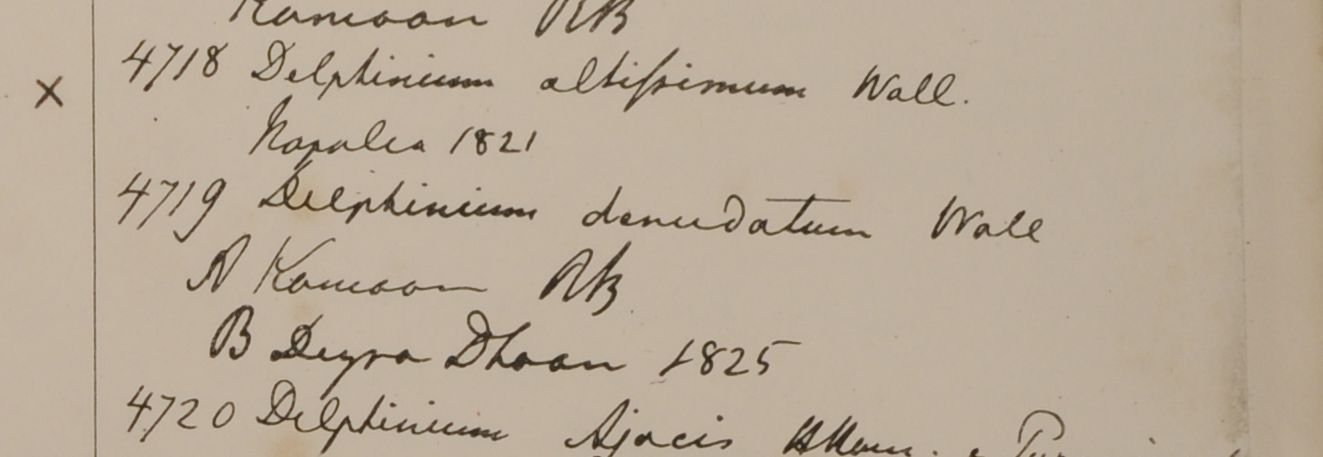 Kamoon RB
4718 Delphinium altiſsimum Wall.
X
Napalia 1821
4719 Delphinium denudatum Wall
A Kamoon RB
B Deyra Dhoon 1825
4720 Delphinium Ajacis